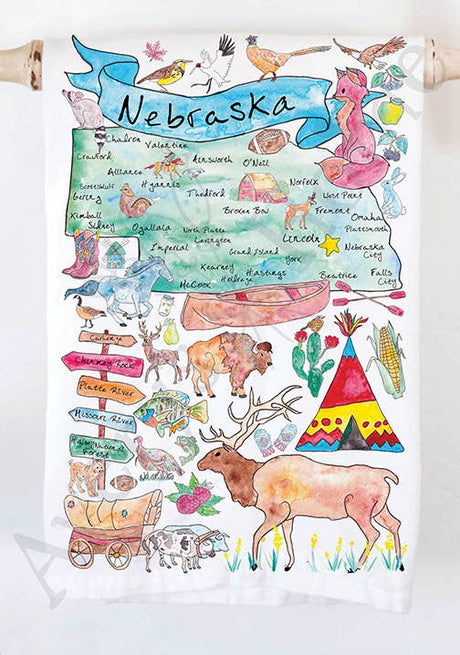 Nebraska
Chadron Valentine
Crawford
Ainsworth O'Neil
Alliance
Scottsbluff Hyannis Thedford Norfolk West Point
Gering
Broken Bow Fremont Omaha
Kimball
Sidney Ogallala North Platte Lincoln Plattsmouth
Imperial Lexington Grand Island York Nebraska City
Kearney Hastings
McCook Holdrege Beatrice Falls City
Chimney Rock
Platte River
Missouri River
Forest